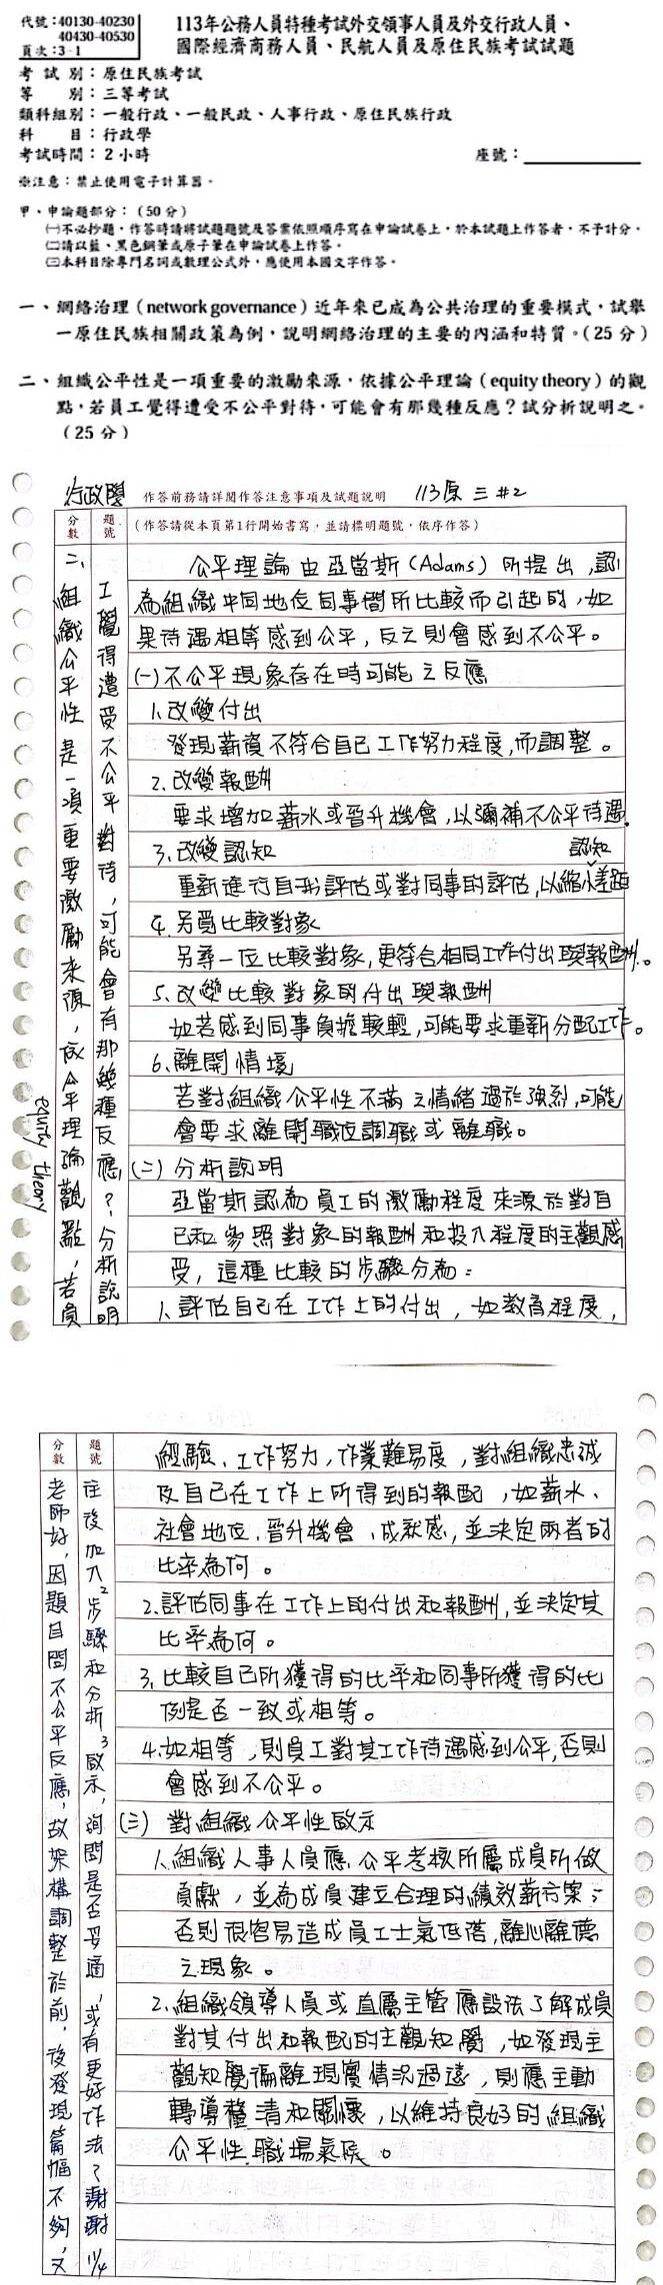 代號:40130-40230
40430-40530
頁次:3-1
113年公務人員特種考試外交領事人員及外交行政人員、
國際經濟商務人員、民航人員及原住民族考試試題
考 試 別:原住民族考試
等 別:三等考試
類科組別:一般行政、一般民政、人事行政、原住民族行政
科 目:行政學
考試時間:2小時
座號:
※注意:禁止使用電子計算器。
甲、申論題部分:(50分)
㈠不必抄題,作答時請將試題題號及答案依照順序寫在申論試卷上,於本試題上作答者,不予計分。
㈡請以藍、黑色鋼筆或原子筆在申論試卷上作答。
㈢本科目除專門名詞或數理公式外,應使用本國文字作答。
一、網絡治理(network governance)近年來已成為公共治理的重要模式,試舉
一原住民族相關政策為例,說明網絡治理的主要的內涵和特質。(25分)
二、組織公平性是一項重要的激勵來源,依據公平理論(equity theory)的觀
點,若員工覺得遭受不公平對待,可能會有那幾種反應?試分析說明之。
(25分)
行政學
作答前務請詳閱作答注意事項及試題說明
113原三#2
分數
題號
(作答請從本頁第1行開始書寫,並請標明題號,依序作答)
二、組織公平性是一項重要激勵來源,依公平理論觀點,若員
equity theory
工覺得遭受不公平對待,可能會有那幾種反應?分析說明
公平理論由亞當斯(Adams)所提出,認
為組織中同地位同事間所比較而引起的,如
果待遇相等感到公平,反之則會感到不公平。
(一)不公平現象存在時可能之反應
1.改變付出
發現薪資不符合自己工作努力程度,而調整。
2.改變報酬
要求增加薪水或晉升機會,以彌補不公平待遇。
3.改變認知
認知
重新進行自我評估或對同事的評估,以縮小差距
4.另覓比較對象
另尋一位比較對象,更符合相同工作付出與報酬。
5.改變比較對象的付出與報酬
如若感到同事負擔較輕,可能要求重新分配工作。
6.離開情境
若對組織公平性不滿之情緒過於強烈,可能
會要求離開職位調職或離職。
(二)分析說明
亞當斯認為員工的激勵程度來源於對自
己和參照對象的報酬和投入程度的主觀感
受,這種比較的步驟分為:
1.評估自己在工作上的付出,如教育程度,
分數
題號
經驗、工作努力,作業難易度,對組織忠誠
及自己在工作上所得到的報酬,如薪水、
社會地位、晉升機會、成就感,並決定兩者的
比率為何。
2.評估同事在工作上的付出和報酬,並決定其
比率為何。
3.比較自己所獲得的比率和同事所獲得的比
例是否一致或相等。
4.如相等,則員工對其工作待遇感到公平,否則
會感到不公平。
(三)對組織公平性啟示
1.組織人事人員應公平考核所屬成員所做
貢獻,並為成員建立合理的績效薪方案;
否則很容易造成員工士氣低落,離心離德
之現象。
2.組織領導人員或直屬主管應設法了解成員
對其付出和報酬的主觀知覺,如發現主
觀知覺偏離現實情況過遠,則應主動
輔導釐清和關懷,以維持良好的組織
公平性職場氣候。
老師好,因題目問不公平反應,故架構調整於前,後發現篇幅不夠,又
往後加入2步驟和分析,3啟示,詢問是否妥適,或有更好作法?謝謝 11/4